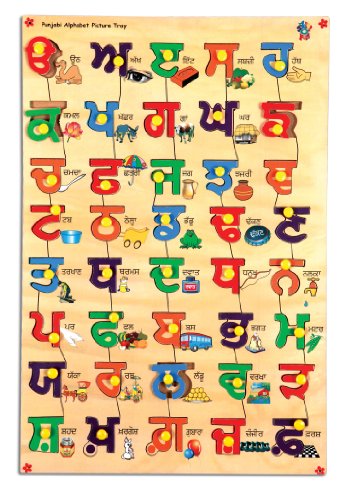 Punjabi Alphabet Picture Tray
ੳ ਊਠ ਅ ਅੱਖ ੲ ਇੱਟ ਸ ਸਬਜ਼ੀ ਹ ਹੱਥ
ਕ ਕਮਲ ਖ ਖੱਚਰ ਗ ਗਾਂ ਘ ਘਰ ਙ
ਚ ਚਮਚਾ ਛ ਛਤਰੀ ਜ ਜਗ ਝ ਝਜਰੀ ਞ
ਟ ਟਬ ਠ ਡ ਡੱਡੂ ਢ ਢੱਕਣ ਣ
ਤ ਤਰਖਾਣ ਥ ਥਰਮਸ ਦ ਦਵਾਤ ਧ ਧਨੁਖ ਨ ਨਲਕਾ
ਪ ਪਰ ਫ ਫਲ ਬ ਬਸ ਭ ਭਗਤ ਮ ਮਟਰ
ਯ ਯੱਕਾ ਰ ਰਥ ਲ ਲੱਡੂ ਵ ਵਰਖਾ ੜ
ਸ਼ ਸ਼ਹਦ ਖ਼ ਖ਼ਰਗੋਸ਼ ਗ਼ ਗ਼ੁਬਾਰਾ ਜ਼ ਜ਼ੰਜੀਰ ਫ਼ ਫ਼ਰਸ਼